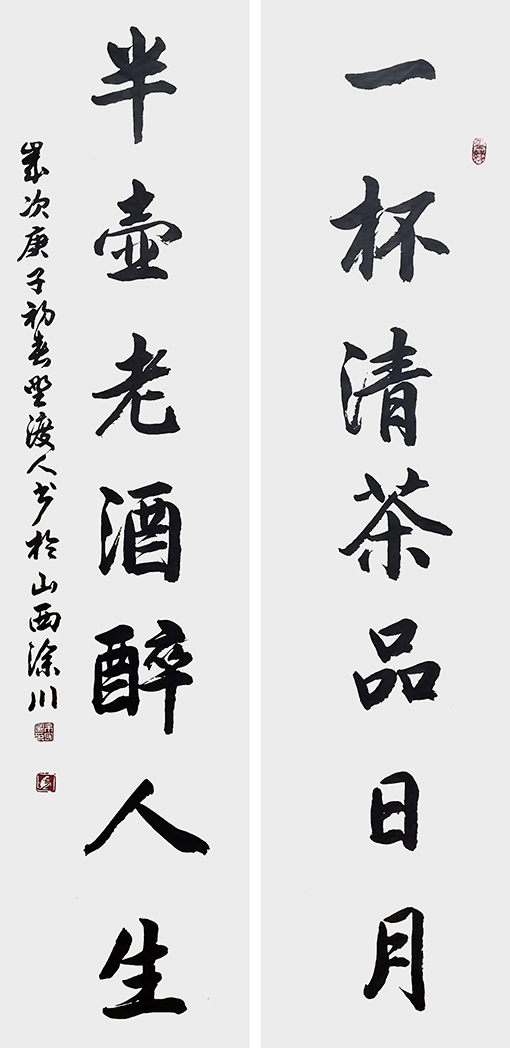 一杯清茶品日月
半壶老酒醉人生
岁次庚子初春野渡人书於山西涂川